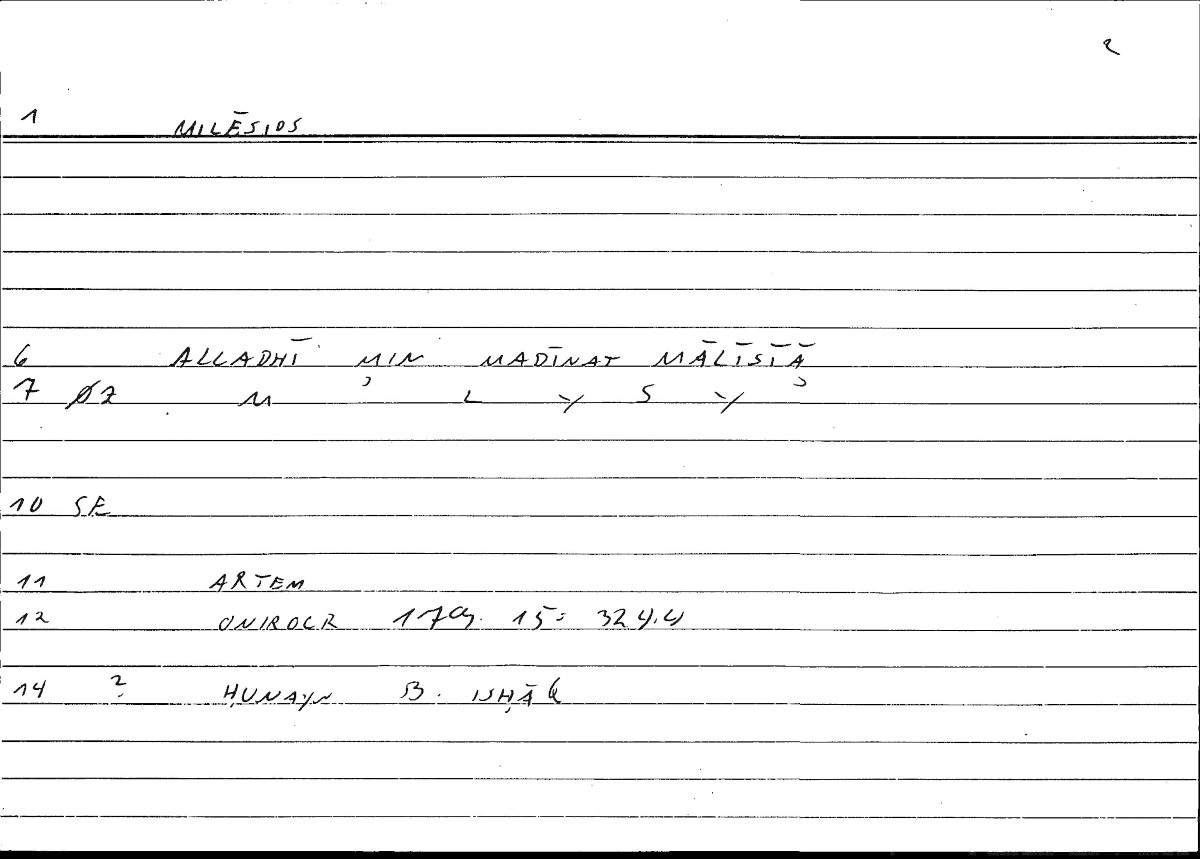 2
1 MILĒSIOS
6 ALLADHĪ MIN MADĪNAT MĀLĪSĪĀ
7 ØZ M ʾ L Y S Y ʾ
10 SE
11 ARTEM
12 ONIROCR 179. 15 = 324.4
14 ? ḤUNAYN B. ISḤĀQ